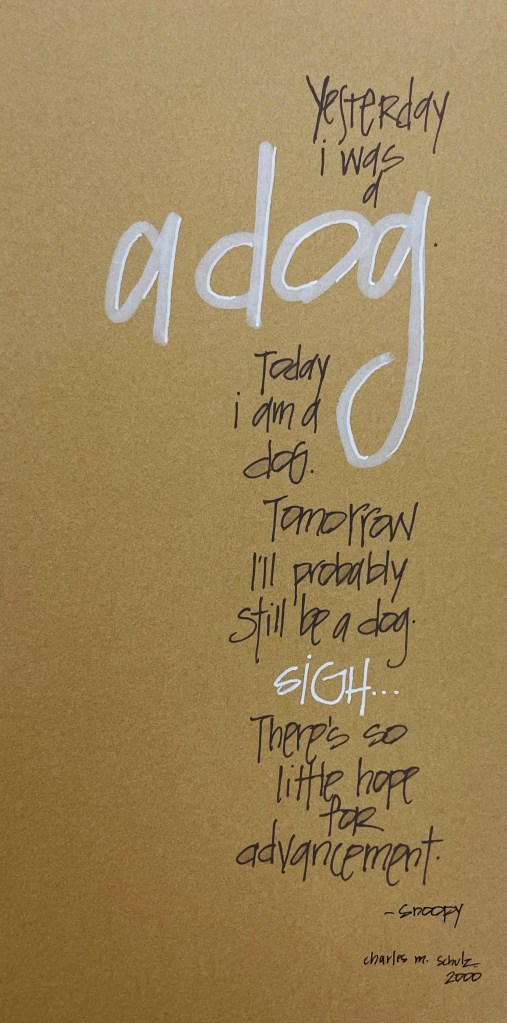 Yesterday
i was
a
a dog.
Today
i am a
dog.
Tomorrow
I'll probably
still be a dog.
SiGH...
There's so
little hope
for
advancement.
- Snoopy
charles m. schulz
2000